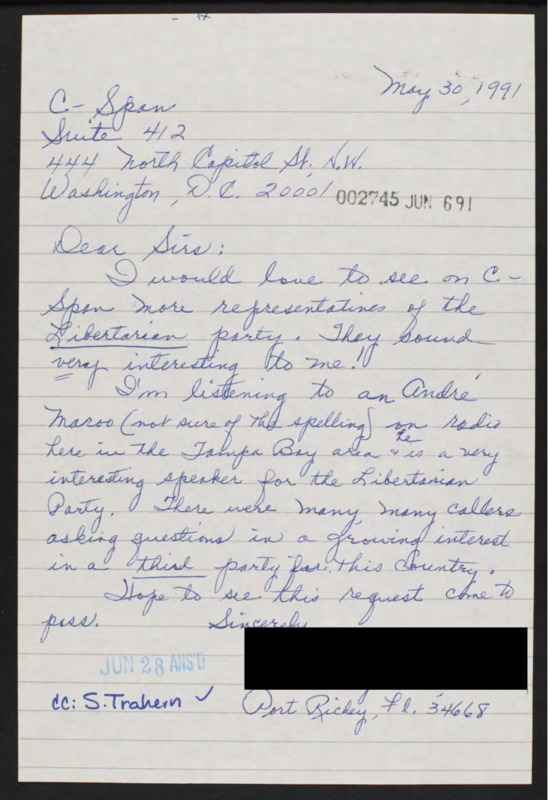 May 30, 1991
C-Span
Suite 412
444 North Capitol St. N.W.
Washington, D.C. 20001
002745 JUN 6 91
Dear Sirs:
I would love to see on C-
Span more representatives of the
Libertarian party. They sound
very interesting to me!
I'm listening to an André
Maroo (not sure of the spelling) on radio
here in the Tampa Bay area & he is a very
interesting speaker for the Libertarian
Party. There were many, many callers
asking questions in a growing interest
in a third party for this country.
Hope to see this request come to
pass. Sincerely
JUN 28 ANS'D
cc: S. Trahern ✓ Port Richey, Fl. 34668